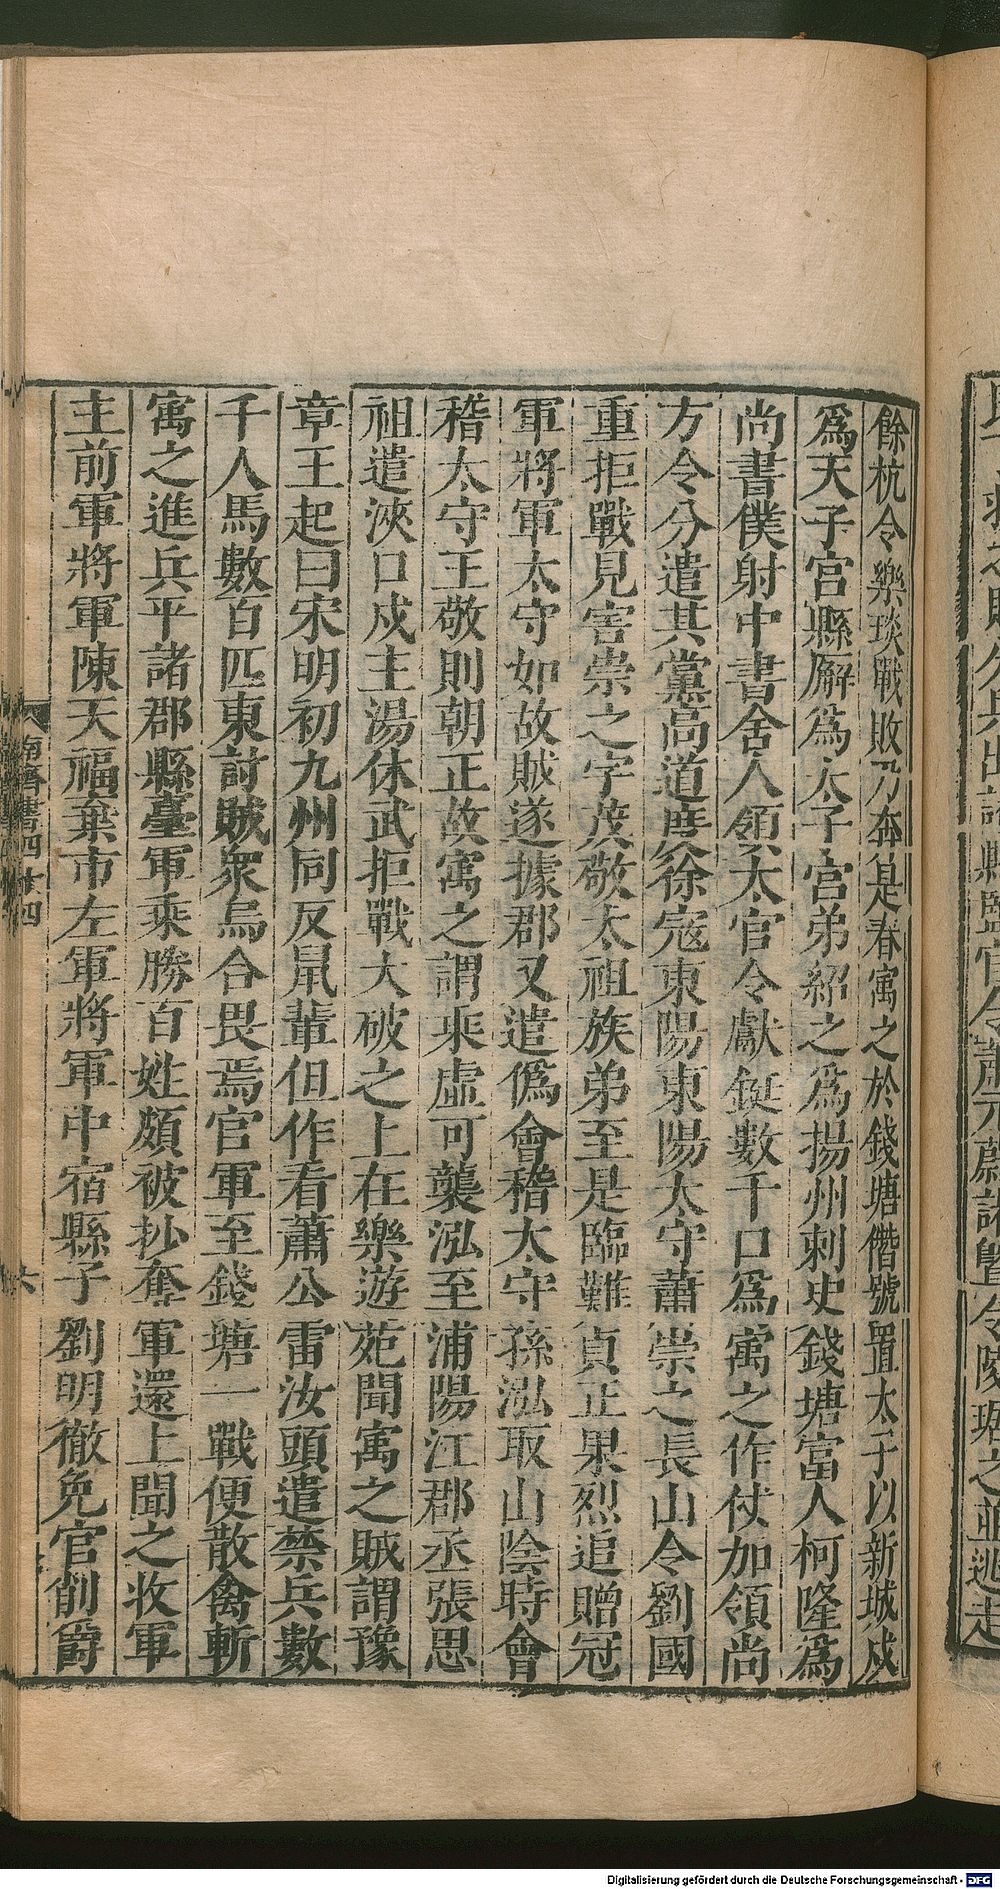 餘杭令樂琰戰敗乃奔是春寓之於錢塘僭號置太子以新城戍
爲天子宮縣廨爲太子宮弟紹之爲揚州刺史錢塘富人柯隆爲
尚書僕射中書舍人領太官令獻鋌數千口爲寓之作仗加領尚
方令分遣其黨高道度徐寇東陽東陽太守蕭崇之長山令劉國
重拒戰見害崇之字茂敬太祖族弟至是臨難貞正果烈追贈冠
軍將軍太守如故賊遂據郡又遣僞會稽太守孫泓取山陰時會
稽太守王敬則朝正故寓之謂乘虛可襲泓至浦陽江郡丞張思
祖遣浹口戍主湯休武拒戰大破之上在樂遊苑聞寓之賊謂豫
章王起曰宋明初九州同反鼠輩但作看蕭公雷汝頭遣禁兵數
千人馬數百匹東討賊衆烏合畏焉官軍至錢塘一戰便散禽斬
寓之進兵平諸郡縣臺軍乘勝百姓頗被抄奪軍還上聞之收軍
主前軍將軍陳天福棄市左軍將軍中宿縣子劉明徹免官削爵
南齊書四十四
六
Digitalisierung gefördert durch die Deutsche Forschungsgemeinschaft - DFG